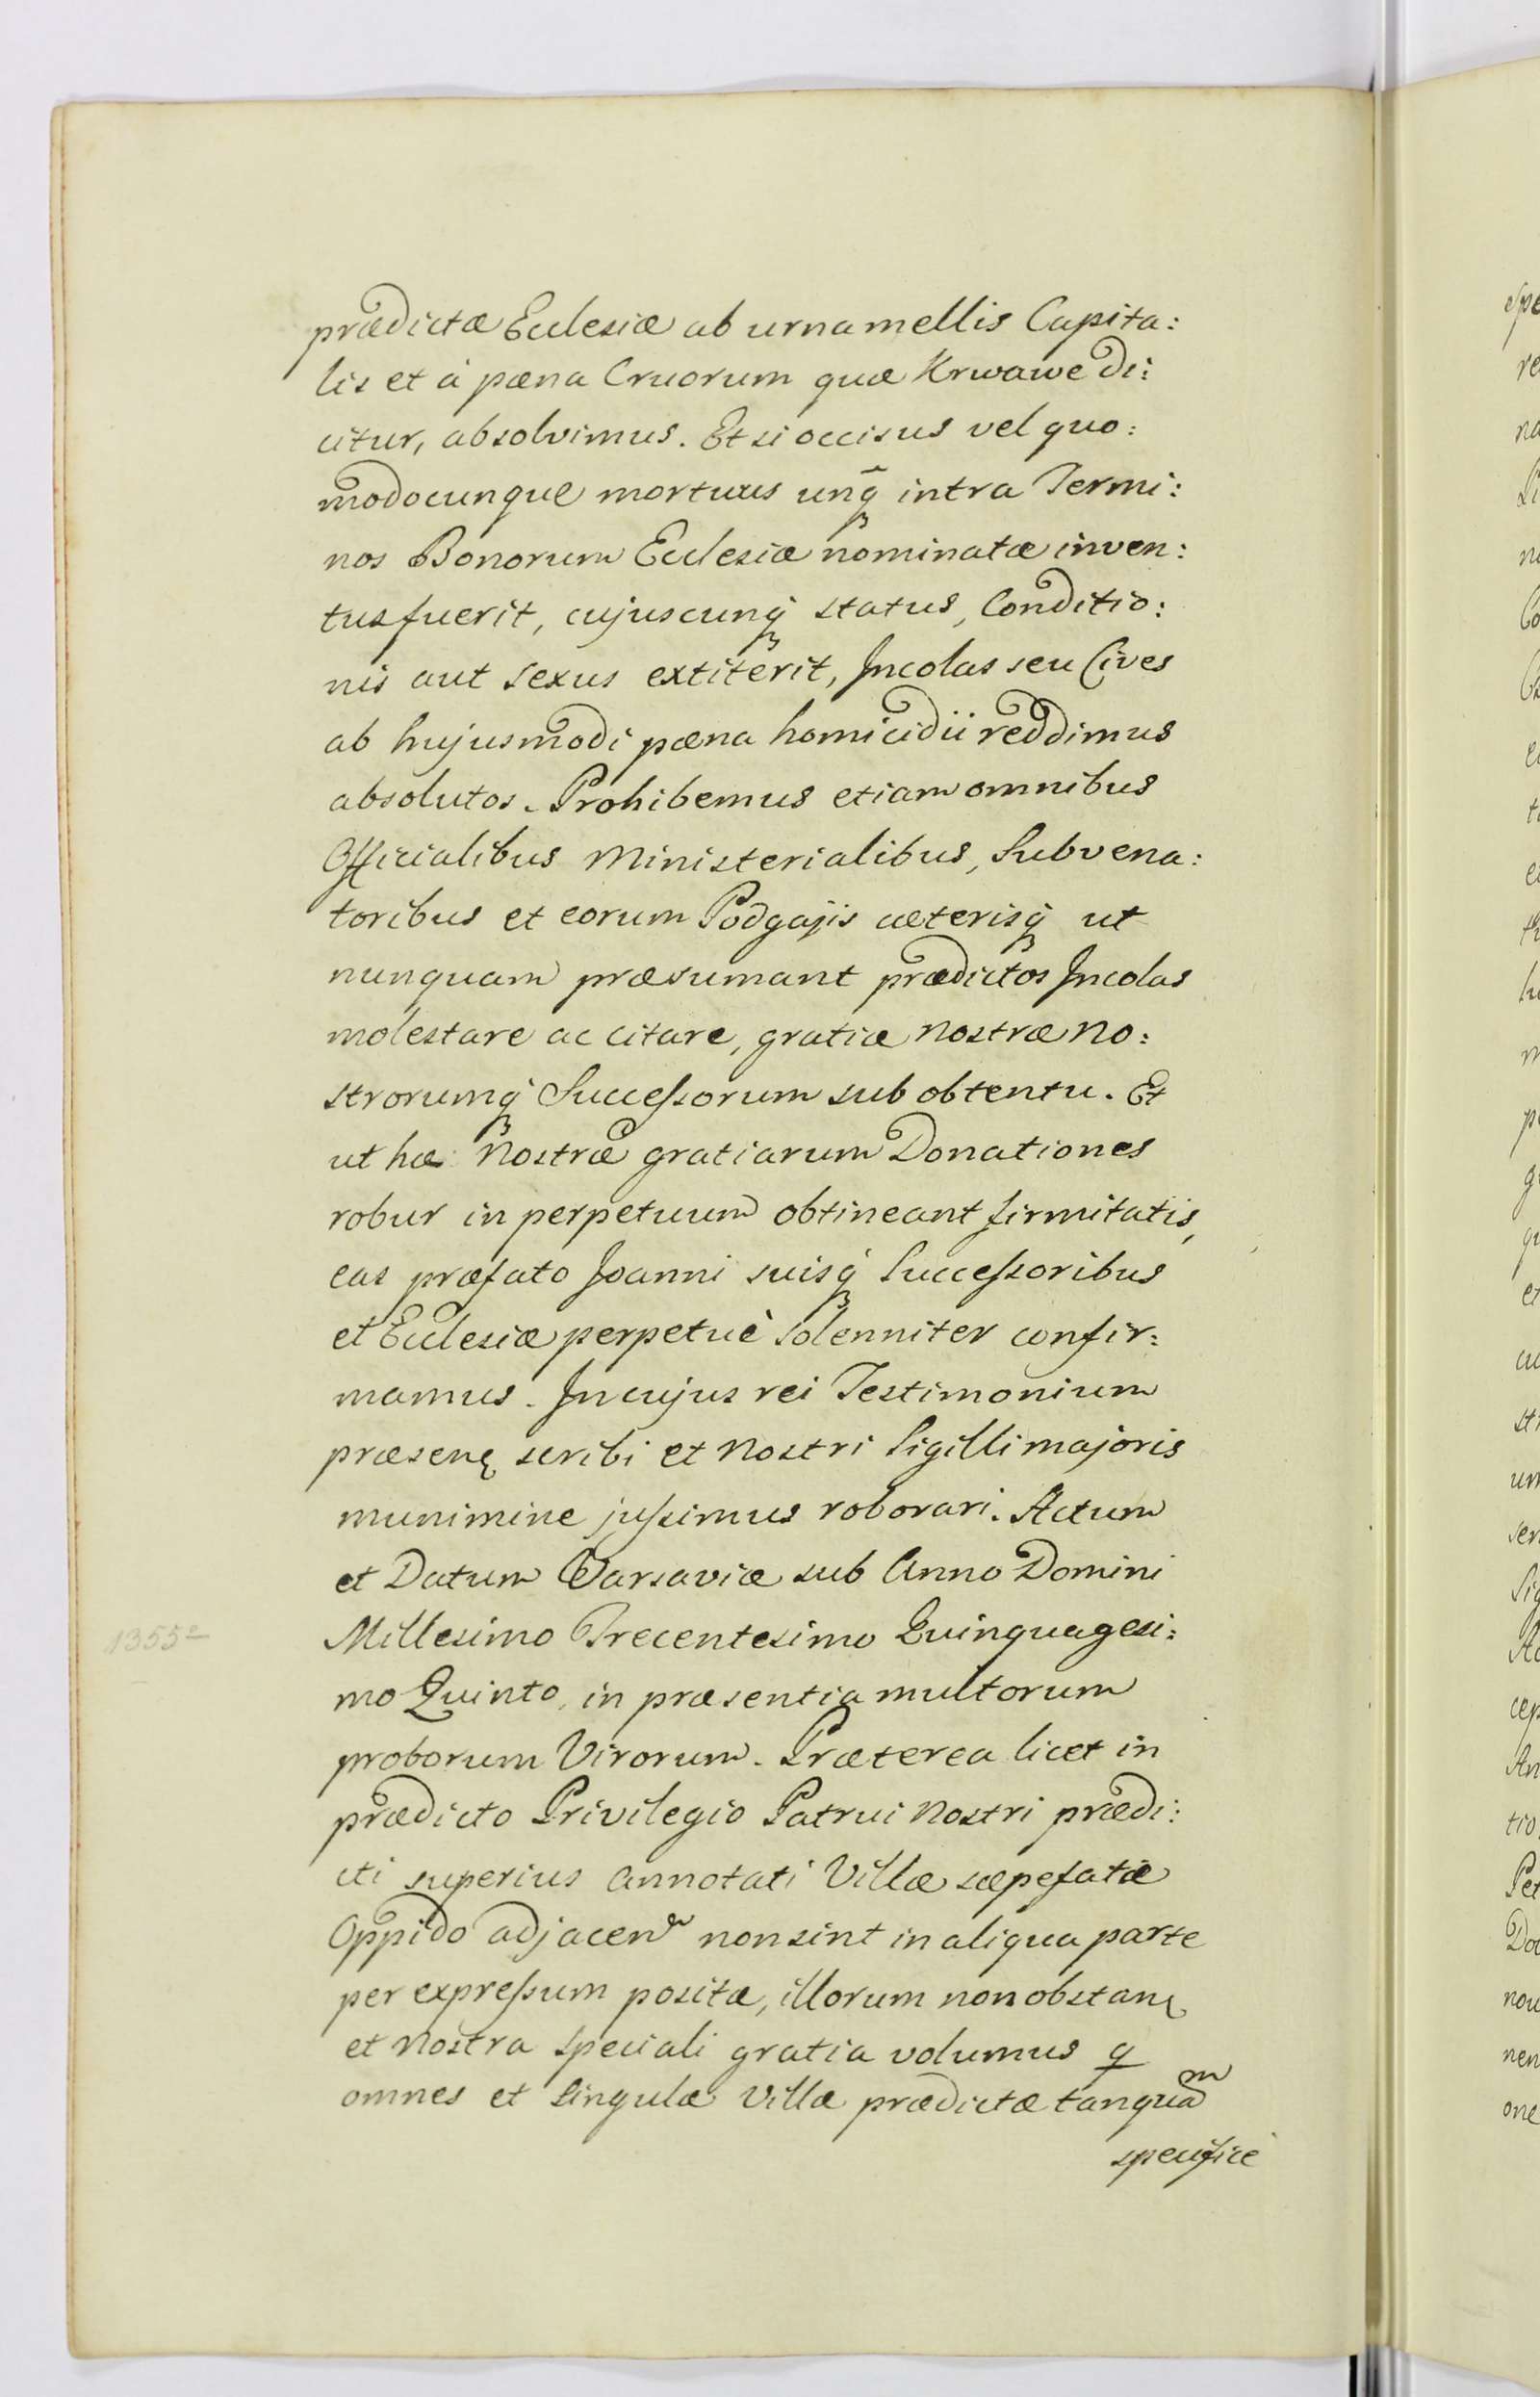 prædictæ Ecclesiæ ab urna mellis Capita:
lis et à pæna Cruorum quæ Krwawe di:
citur, absolvimus. Et si occisus vel quo:
modocunque mortuus unq̃ intra Termi:
nos Bonorum Ecclesiæ nominatæ inven:
tus fuerit, cujuscunq̨ status, Conditio:
nis aut sexus extiterit, Incolas seu Cives
ab hujusmodi pæna homicidii reddimus
absolutos. Prohibemus etiam omnibus
Officialibus Ministerialibus, Subvena:
toribus et eorum Podgajis cæterisq̨ ut
nunquam præsumant prædictos Incolas
molestare ac citare, gratiæ Nostræ No:
strorumq̨ Successorum sub obtentu. Et
ut hæ Nostræ gratiarum Donationes
robur in perpetuum obtineant firmitatis,
eas præfato Joanni suisq̨ Successoribus
et Ecclesiæ perpetuè solenniter confir:
mamus. In cujus rei Testimonium
præsenę scribi et Nostri Sigilli majoris
munimine jussimus roborari. Actum
et Datum Varsaviæ sub Anno Domini
1355º
Millesimo Trecentesimo Quinquagesi:
mo Quinto, in præsentia multorum
proborum Virorum. Præterea licet in
prædicto Privilegio Patrui Nostri prædi:
cti superius annotati Villæ sæpefatæ
Oppido adjacen non sint in aliqua parte
per expressum positæ, illorum non obstanę
et Nostra speciali gratia volumus q̱
omnes et singulæ Villæ prædictæ tanquam
specifice